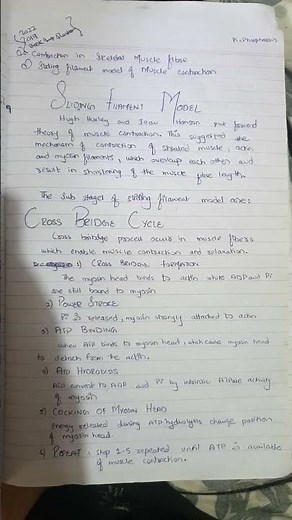 2022
2019
Q: Contraction in Skeletal Muscle fibre
Sliding filament model of Muscle contraction
SLIDING FILAMENT MODEL
Hugh Huxley and Jean Hanson put forward
theory of muscle contraction. This suggested the
mechanism of contraction of striated muscle, actin
and myosin filaments, which overlap each other and
result in shortening of the muscle fibre length.
The sub stages of sliding filament model are:
CROSS BRIDGE CYCLE
Cross bridge process occurs in muscle fibers
which enable muscle contraction and relaxation.
1) CROSS BRIDGE FORMATION
The myosin head binds to actin while ADP and Pi
are still bound to myosin
2) POWER STROKE
Pi is released, myosin strongly attached to actin
3) ATP BINDING
when ATP binds to myosin head, which cause myosin head
to detach from the actin.
4) ATP HYDROLYSIS
ATP convert to ADP and Pi by intrinsic ATPase activity
of myosin
5) COCKING OF MYOSIN HEAD
Energy released during ATP hydrolysis change position
of myosin head.
6) REPEAT : step 1-5 repeated until ATP is available
of muscle contraction.